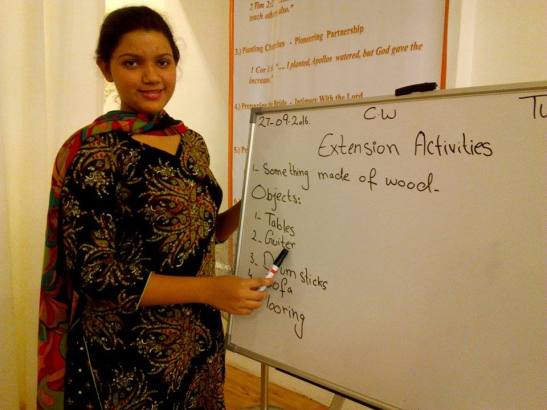 2 Tim 2:2
teach others also."
3.) Planting Churches - Pioneering Partnership
1 Cor 3:6 "... I planted, Apollos watered, but God gave the
increase."
4.) Preparing Bride - Intimacy With the Lord
5.)
27-09-2016
C.W
Tu
Extension Activities
1- Something made of wood-
Objects:
1- Tables
2- Guiter
3- Drum sticks
4 ofa
looring